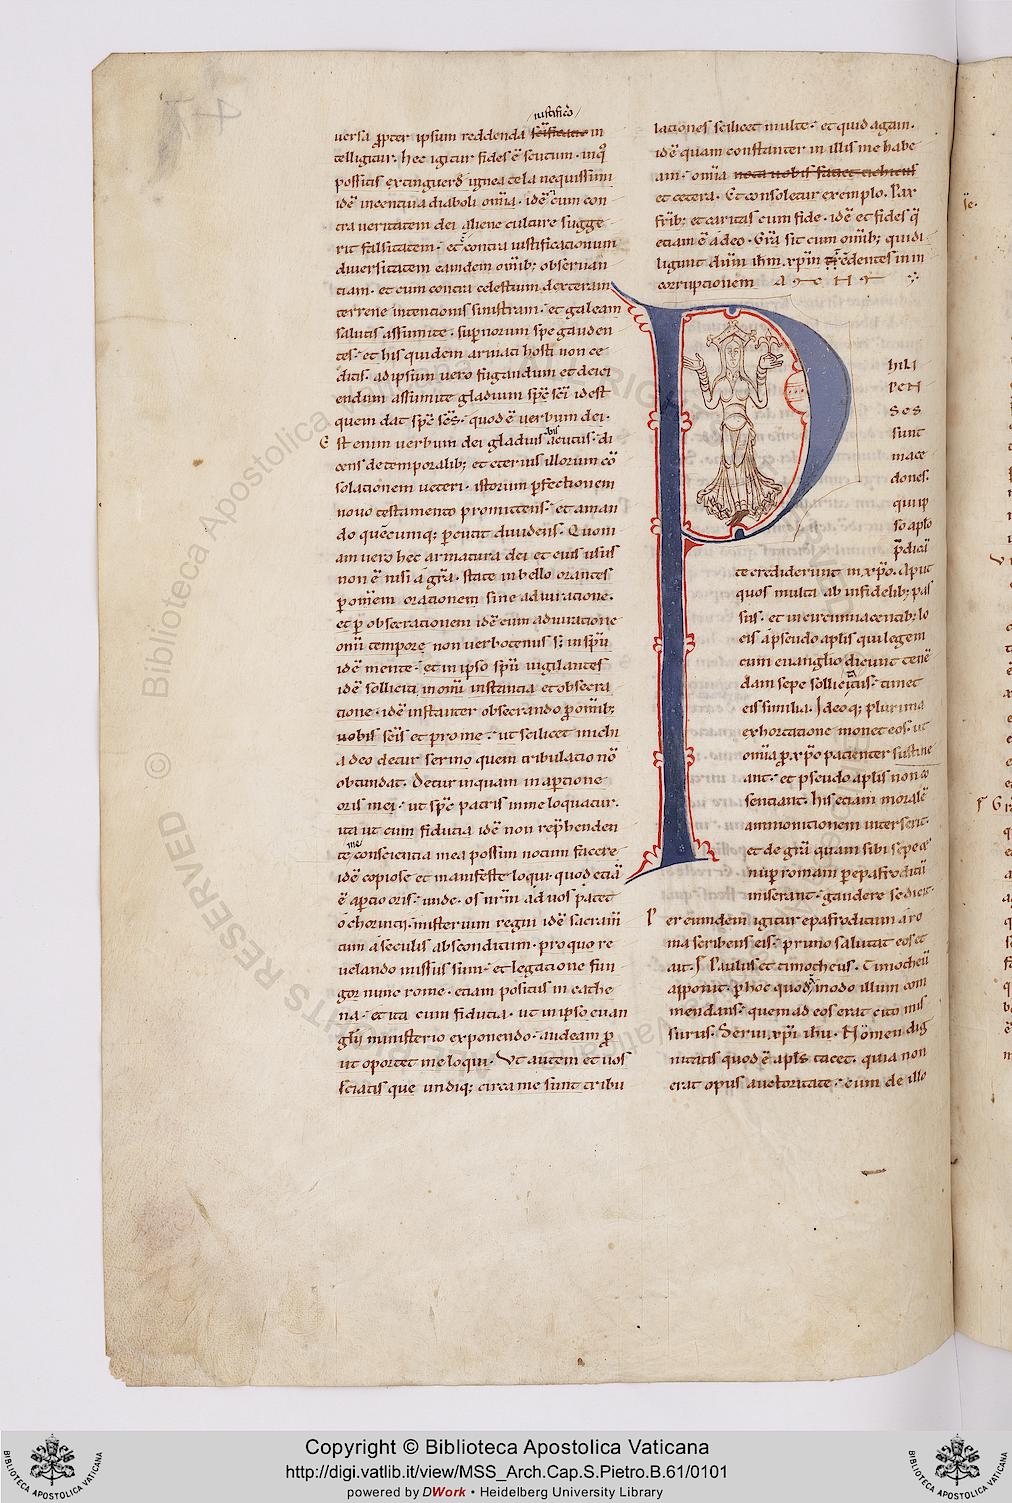 iustificõ
uersa ꝓpter ipsum reddenda sc̄ificatio in
telligitur. hec igitur fides ē scutum. inq̊
possitis extinguere ignea tela nequissimi
idē incentiua diaboli om̄ia. idē cum con
tra ueritatem dei aliene culture sugge
rit falsitatem. et contra iustificationum
diuersitatem eamdem om̄ib; obseruan
tiam. et cum contra celestium dexteram
terrene intentionis sinistram. et galeam
salutis assumite. suꝑnorum spe gauden
tes. et his quidem armati hosti non ce
ditis. ad ipsum uero fugandum et deici
endum assumite gladium sp̄c sc̄i id est
quem dat sp̄c sc̄s. quod ē uerbum dei.
Est enim uerbum dei gladius bis acutus. di
cens de temporalib; et eternis illorum cō
solationem ueteri. istorum ꝑfectionem
nouo testamento promittens. et aman
do quēcumq; ꝑcutit diuidens. Quoni
am uero hec armatura dei et eius usus
non ē nisi a gr̄a. state in bello orantes
ꝑ om̄em orationem sine adiuratione.
et ꝑ obsecrationem idē cum adiuratione
omni tempore non uerbotenus s; in sp̄u
idē mente. et in ipso sp̄u uigilantes
idē solliciti in omni instantia et obsecra
tione. idē instanter obsecrando ꝑ om̄ib;
uobis sc̄is et pro me. ut scilicet michi
a deo detur sermo quem tribulatio nō
obtundat. Detur inquam in aꝑtione
oris mei. ut sp̄c patris in me loquatur.
ita ut cum fiducia idē non rep̄henden
te me conscientia mea possim notum facere
idē copiose et manifeste loqui. quod etiā
ē aꝑtio oris. unde. os nr̄m ad uos patet
o chorintii. misterium regni idē sacram̄
tum a seculis absconditum. pro quo re
uelando missus sum. et legatione fun
gor nunc rome. etiam positus in cathe
na. et ita cum fiducia. ut in ipso euan
glii ministerio exponendo. audeam ꝓ
ut oportet me loqui. Ut autem et uos
sciatis que undiq; circa me sunt tribu
lationes scilicet multe. et quid agam.
idē quam constanter in illis me habe
am. om̄ia nota uobis faciet tichicus
et cetera. Et consoletur exemplo. Pax
frīb; et caritas cum fide. idē et fides q̄
etiam ē a deo. Gr̄a sit cum om̄ib; qui di
ligunt dn̄m ih̄m xp̄m credentes in in
corruptionem
P
HILI
PEN
SES
sunt
mace
dones.
qui ip
so ap̄lo
p̄dicā
te crediderunt in xp̄o. Aput
quos multi ab infidelib; pas
sus. et in circumiacentib; lo
cis a pseudo aplis qui legem
cum euanglio dicunt tenē
dam sepe sollicitis. timet
eis similia. Ideoq; plurima
exhortatione monet eos. ut
om̄ia ꝑ xp̄o pacienter sustine
ant. et pseudo aplis non cō
sentiant. his etiam moralē
ammonitionem interserit.
et de gr̄a quam sibi sepe &
nuꝑ romam ꝑ epafroditū
miserant. gaudere se dicit.
Per eumdem igitur epafroditum a ro
ma scribens eis. primo salutat eos et
ait. Paulus et timotheus. Timotheū
apponit. ꝑ hoc quodāmodo illum com
mendans. quem ad eos erat cito mis
surus. Serui xp̄i ihu. Nomen dig
nitatis quod ē apls tacet. quia non
erat opus auctoritate. cum de illo
Copyright © Biblioteca Apostolica Vaticana
http://digi.vatlib.it/view/MSS_Arch.Cap.S.Pietro.B.61/0101
powered by DWork • Heidelberg University Library
BIBLIOTECA APOSTOLICA VATICANA
BIBLIOTECA APOSTOLICA VATICANA
© Biblioteca Apostolica Vaticana ALL RIGHTS RESERVED